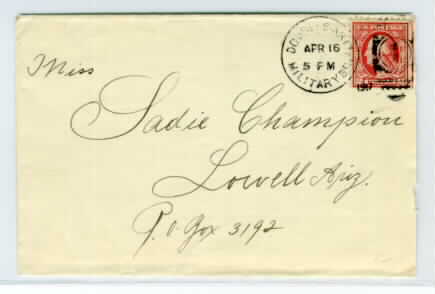 DOUGLAS, ARIZ.
APR 16
5 PM
MILITARY
1917
Miss
Sadie Champion
Lowell Ariz.
P. O Box 3192